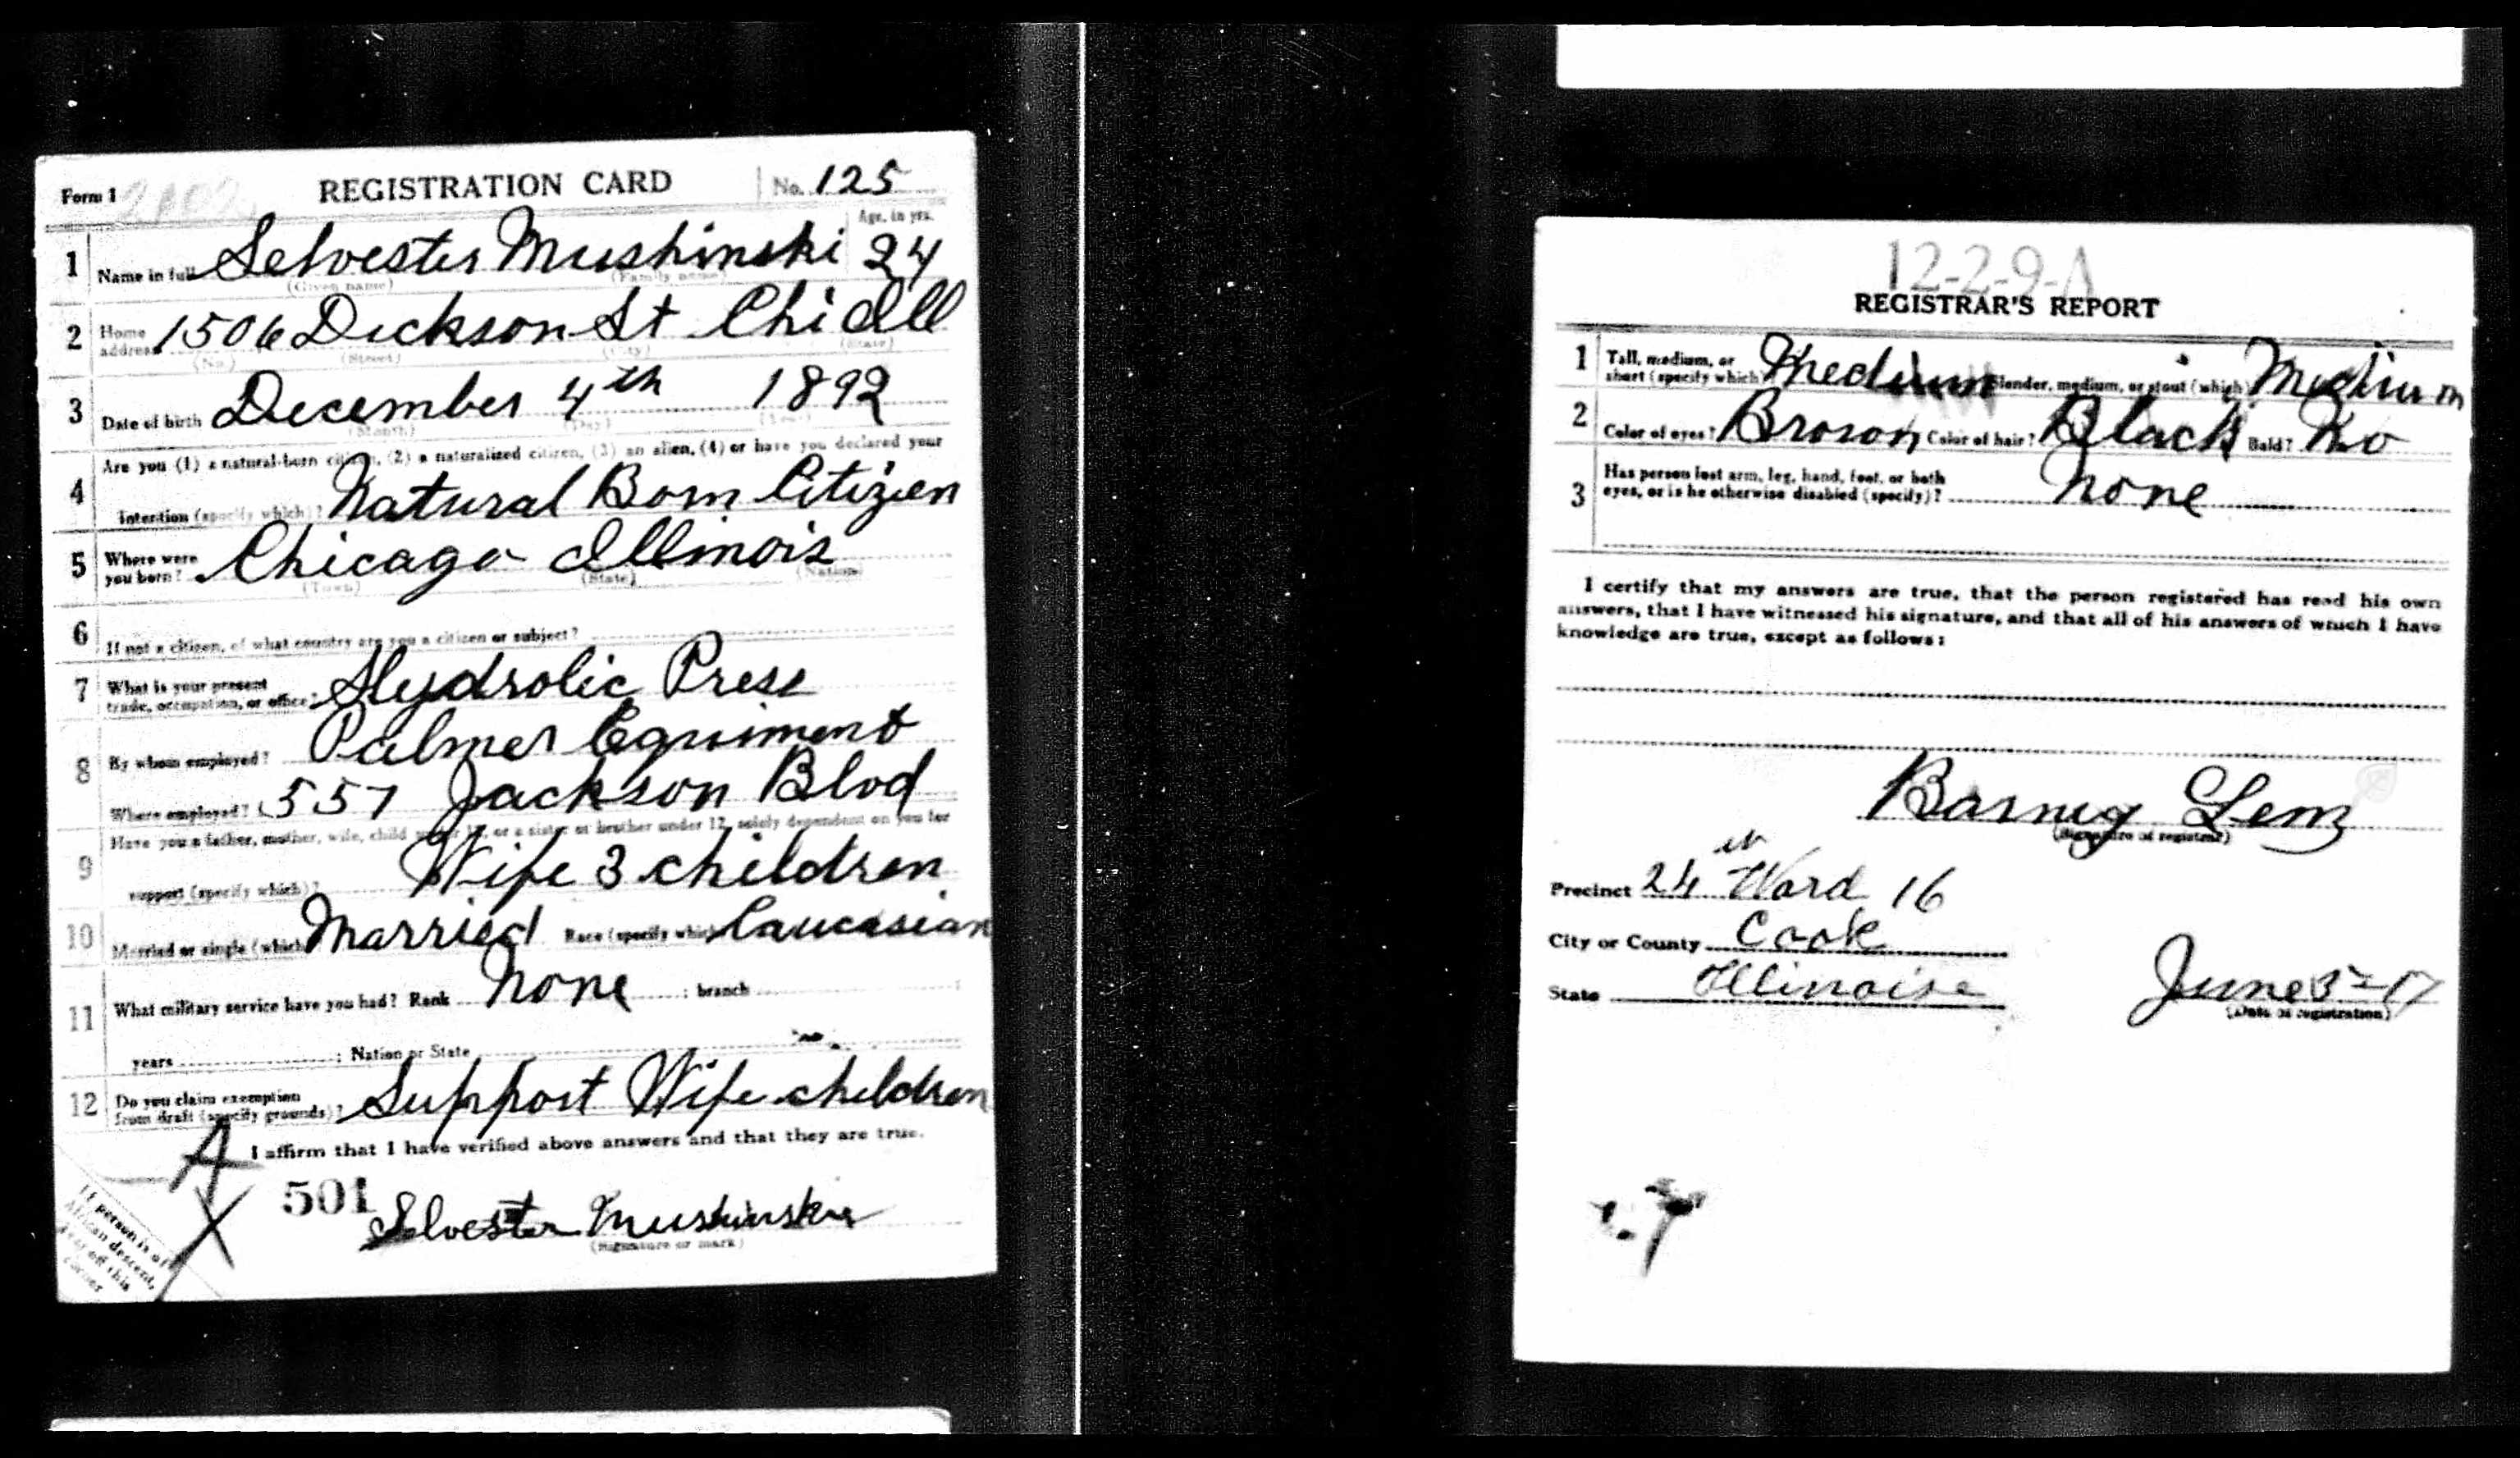 Form 1 REGISTRATION CARD No. 125
Age, in yrs.
1 Name in full Selvester Mushinski 24
(Given name) (Family name)
2 Home address 1506 Dickson St Chi Ill
(No.) (Street) (City) (State)
3 Date of birth December 4th 1892
(Month) (Day) (Year)
Are you (1) a natural-born citizen, (2) a naturalized citizen, (3) an alien, (4) or have you declared your
4 intention (specify which)? Natural Born Citizen
5 Where were you born? Chicago Illinois
(Town) (State) (Nation)
6 If not a citizen, of what country are you a citizen or subject?
7 What is your present trade, occupation, or office? Hydrolic Press
8 By whom employed? Palmer Equiment
Where employed? 557 Jackson Blvd
Have you a father, mother, wife, child under 12, or a sister or brother under 12, solely dependent on you for
9 support (specify which)? Wife 3 children
10 Married or single (which)? Married Race (specify which)? Caucasian
11 What military service have you had? Rank None ; branch
years ; Nation or State
12 Do you claim exemption from draft (specify grounds)? Support Wife children
I affirm that I have verified above answers and that they are true.
A
X
501
Selvester Mushinski
(Signature or mark)
If person is of
African descent,
tear off this
corner
12-2-9-A
REGISTRAR'S REPORT
1 Tall, medium, or short (specify which)? Medium Slender, medium, or stout (which)? Medium
2 Color of eyes? Brown Color of hair? Black Bald? No
3 Has person lost arm, leg, hand, foot, or both
eyes, or is he otherwise disabled (specify)? None
I certify that my answers are true, that the person registered has read his own
answers, that I have witnessed his signature, and that all of his answers of which I have
knowledge are true, except as follows:
Barney Lenz
(Signature of registrar)
Precinct 24 Ward 16
City or County Cook
State Illinoise
June 5-17
(Date of registration)